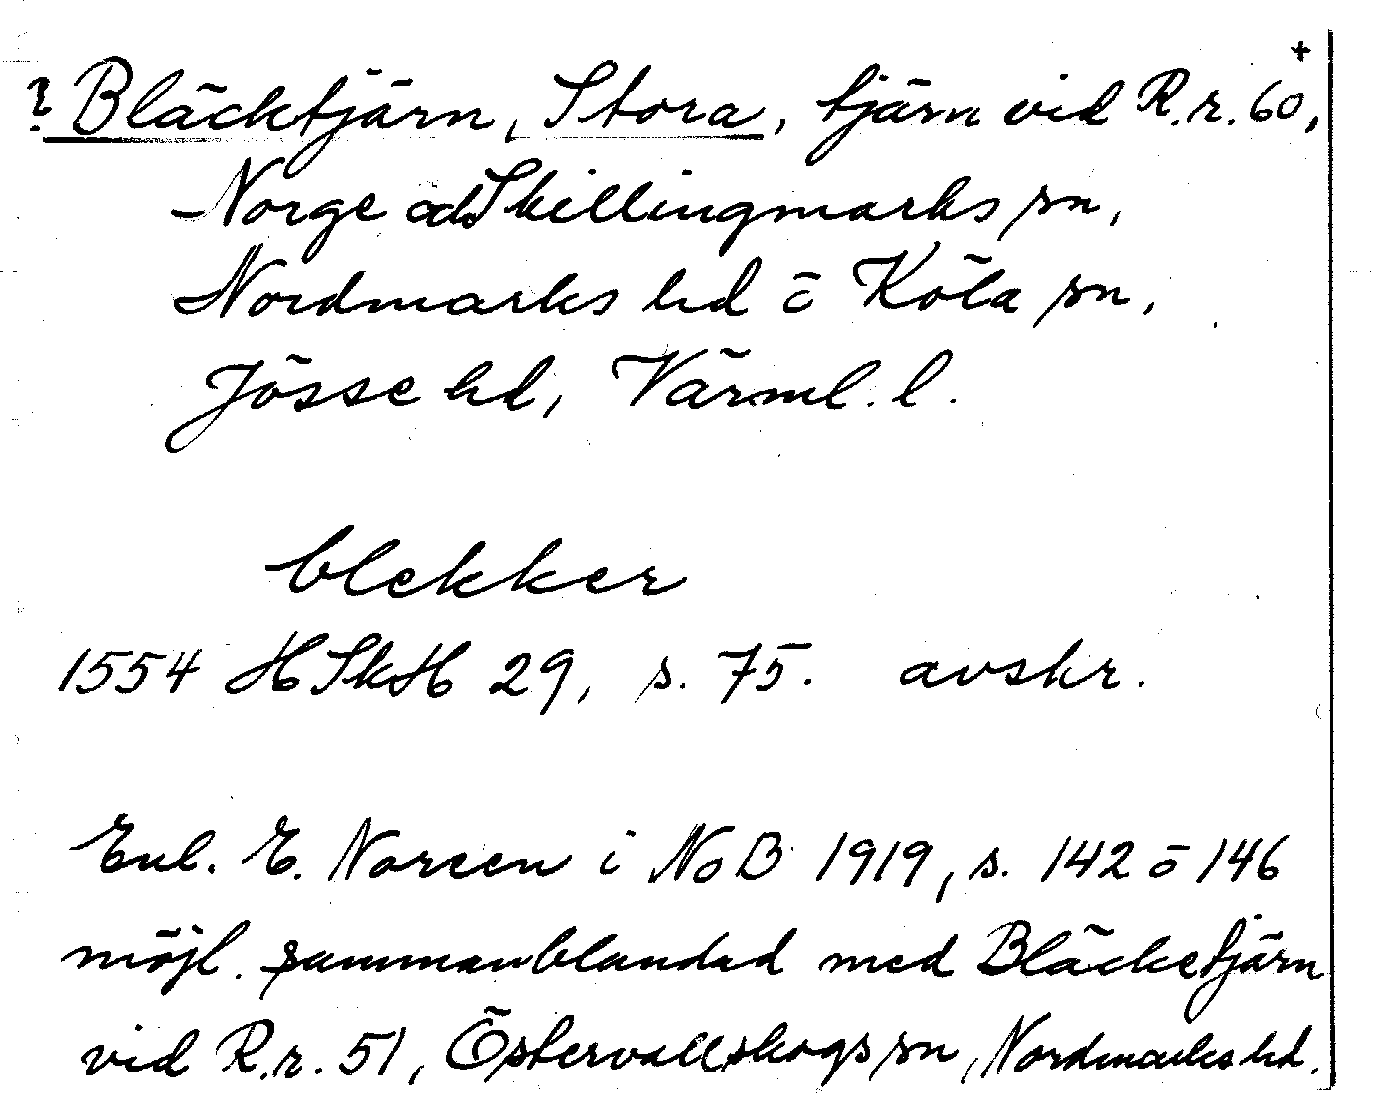 +
? Bläcktjärn, Stora, tjärn vid R.r. 60,
Norge och Skillingmarks sn,
Nordmarks hd o Köla sn,
Jösse hd, Värml. l.
blekker
1554 HSkH 29, s. 75. avskr.
Enl. E. Noreen i NoB 1919, s. 142 o 146
möjl. sammanblandad med Bläcketjärn
vid R.r. 51, Östervallskogs sn, Nordmarks hd.